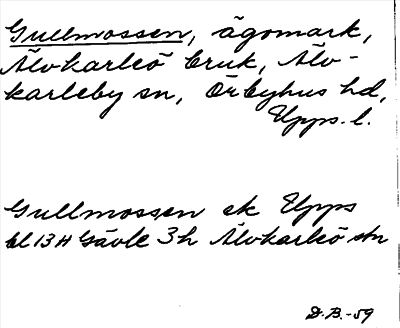 Gullmossen, ägomark,
Älvkarleö bruk, Älv-
karleby sn, Örbyhus hd,
Upps. l.
Gullmossen ek Upps
bl 13H Gävle 3h Älvkarleö stn
D.B.-59